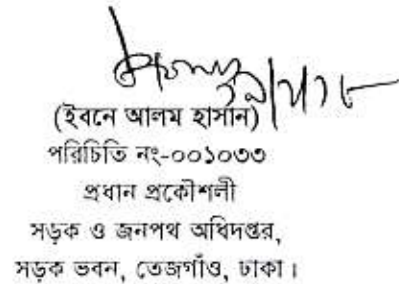 (ইবনে আলম হাসান)
পরিচিতি নং-০০১০৩৩
প্রধান প্রকৌশলী
সড়ক ও জনপথ অধিদপ্তর,
সড়ক ভবন, তেজগাঁও, ঢাকা।